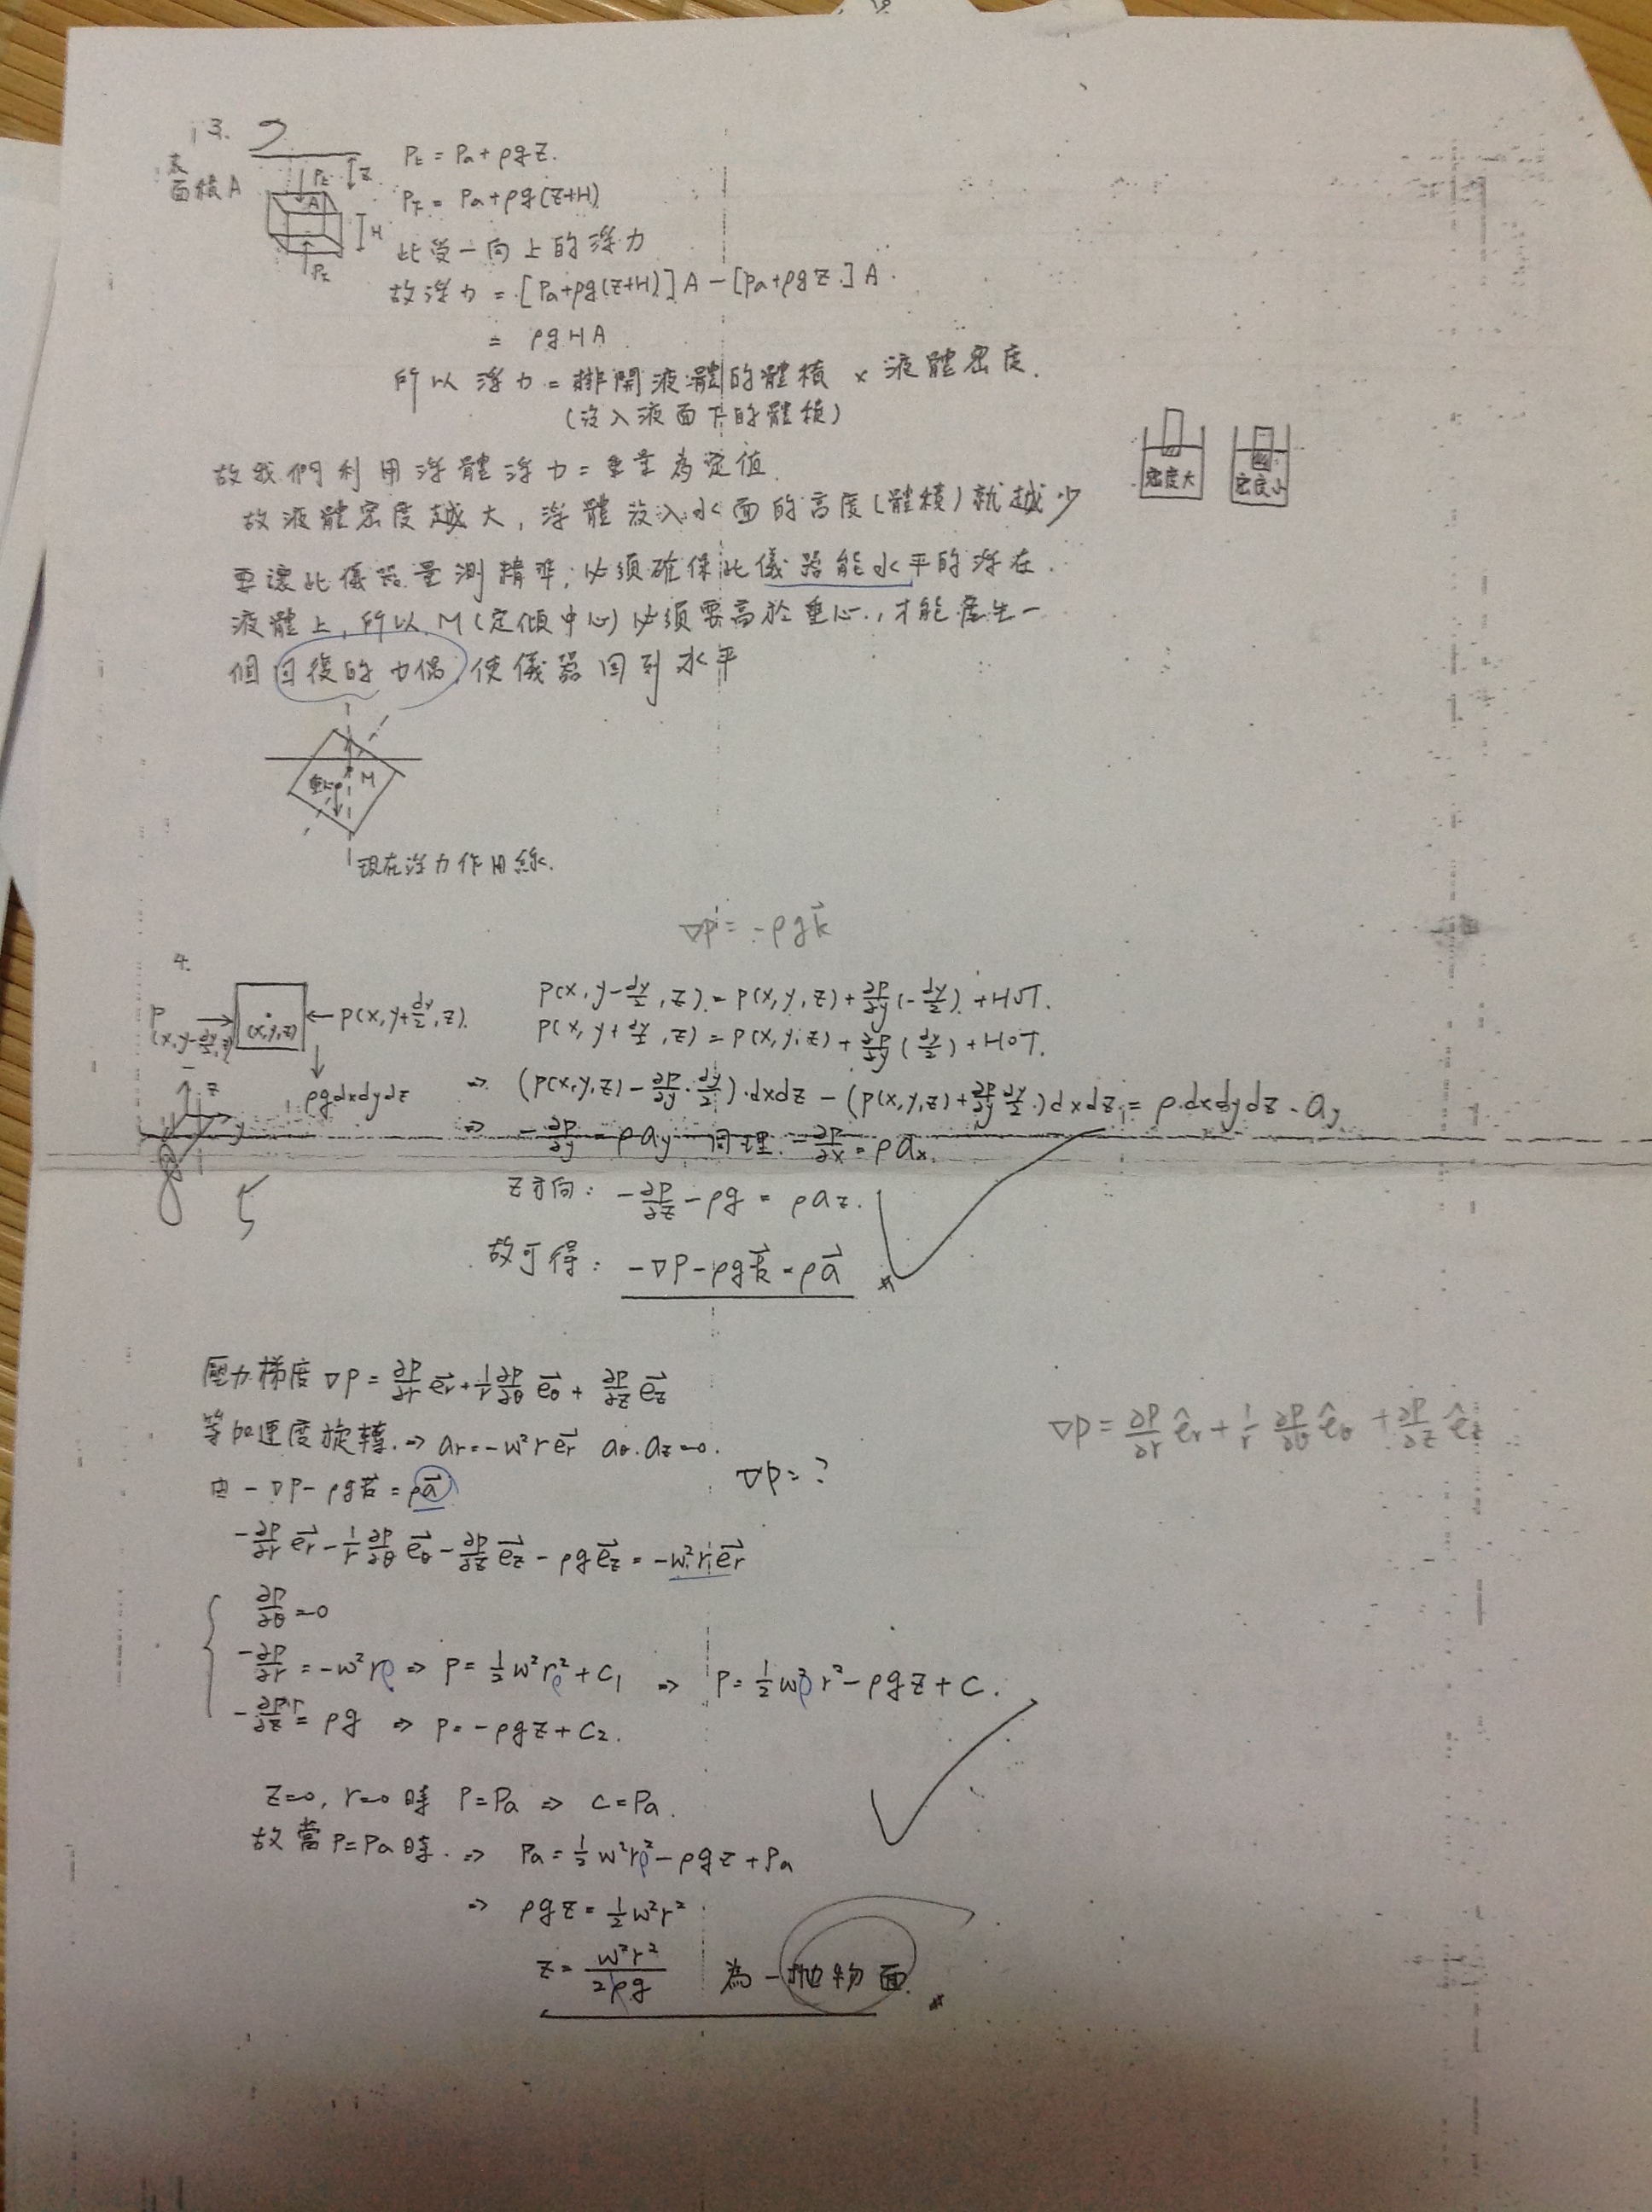 3.
表面積A
Pt
z
A
H
Pz
Pt = Pa + ρgz.
Pz = Pa + ρg(z+H)
此受一向上的浮力
故浮力 = [Pa+ρg(z+H)]A - [Pa+ρgz.]A.
= ρgHA.
所以 浮力 = 排開液體的體積 × 液體密度.
(沒入液面下的體積)
故我們利用浮體浮力 = 重量為定值.
故液體密度越大, 浮體沒入水面的高度(體積)就越少
密度大
密度小
要讓此儀器量測精準, 必須確保此儀器能水平的浮在
液體上, 所以 M (定傾中心) 必須要高於重心, 才能產生一
個回復的力偶, 使儀器回到水平
重心
M
現在浮力作用線.
∇p = -ρgk⃗
4.
P
(x, y-dy/2, z)
(x,y,z)
P(x, y+dy/2, z).
ρgdxdydz
z
y
P(x, y-dy/2, z) = P(x, y, z) + ∂P/∂y(-dy/2) + HOT.
P(x, y+dy/2, z) = P(x, y, z) + ∂P/∂y(dy/2) + HOT.
⇒ (P(x,y,z) - ∂P/∂y·dy/2)·dxdz - (P(x,y,z)+∂P/∂y dy/2.)dxdz = ρ·dxdydz·ay
⇒ -∂P/∂y = ρay 同理 -∂P/∂x = ρax.
z方向: -∂P/∂z - ρg = ρaz.
故可得: -∇P-ρgk⃗ = ρa⃗
壓力梯度 ∇P = ∂P/∂r e⃗r + 1/r ∂P/∂θ e⃗θ + ∂P/∂z e⃗z
∇p = ∂p/∂r êr + 1/r ∂p/∂θ êθ + ∂p/∂z êz
等加速度旋轉. ⇒ ar = -w²r e⃗r aθ. az = 0.
∇p = ?
由 -∇P - ρgk⃗ = ρa⃗
-∂P/∂r e⃗r - 1/r ∂P/∂θ e⃗θ - ∂P/∂z e⃗z - ρg e⃗z = -w²r e⃗r
∂P/∂θ = 0
-∂P/∂r = -w²rρ ⇒ P = 1/2 w²r²ρ + C1 ⇒ P = 1/2 w²ρr² - ρgz + C.
-∂P/∂z = ρg ⇒ P = -ρgz + C2.
z=0, r=0 時 P=Pa ⇒ C=Pa.
故當 P=Pa 時. ⇒ Pa = 1/2 w²r²ρ - ρgz + Pa
⇒ ρgz = 1/2 w²r²
z = w²r²/2ρg 為一拋物面.